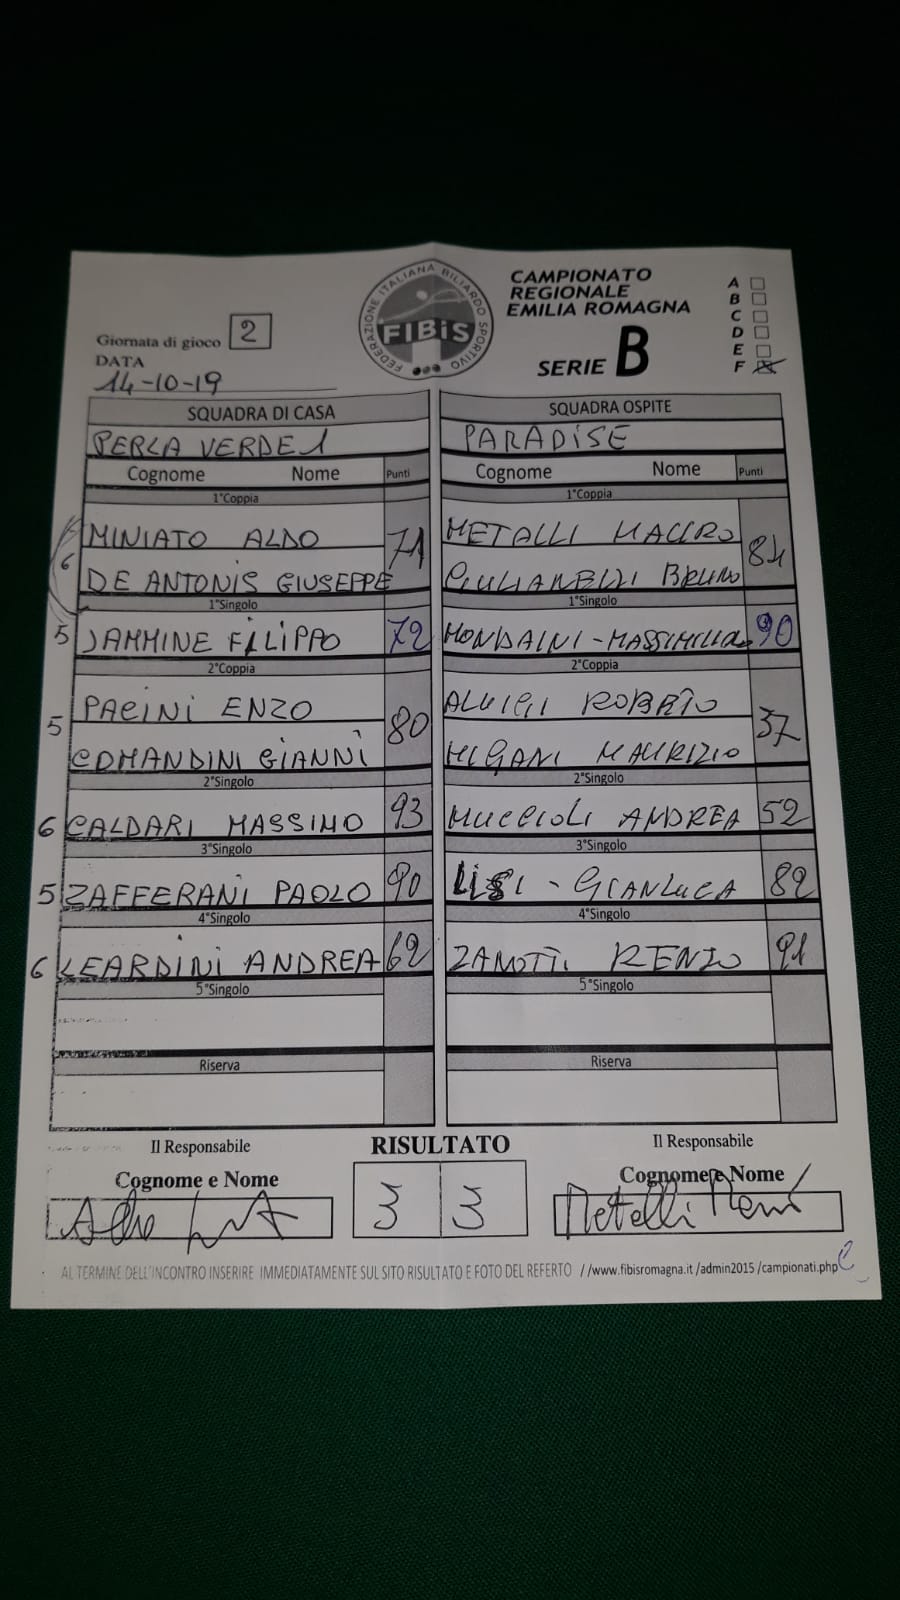 FEDERAZIONE ITALIANA BILIARDO SPORTIVO
FIBiS
CAMPIONATO
REGIONALE
EMILIA ROMAGNA
SERIE B
A
B
C
D
E
F
Giornata di gioco 2
DATA
14-10-19
SQUADRA DI CASA SQUADRA OSPITE
PERLA VERDE 1 PARADISE
Cognome Nome Punti Cognome Nome Punti
1°Coppia 1°Coppia
MINIATO ALDO 71 METALLI MAURO 84
6 DE ANTONIS GIUSEPPE GIULIANELLI BRUNO
1°Singolo 1°Singolo
5 JAMMINE FILIPPO 72 MONDAINI-MASSIMILIANO 90
2°Coppia 2°Coppia
5 PACINI ENZO 80 ALUIGI ROBERTO 37
COMANDINI GIANNI MIGANI MAURIZIO
2°Singolo 2°Singolo
6 CALDARI MASSIMO 93 MUCCIOLI ANDREA 52
3°Singolo 3°Singolo
5 ZAFFERANI PAOLO 90 LISI - GIANLUCA 82
4°Singolo 4°Singolo
6 LEARDINI ANDREA 62 ZANOTTI RENZO 91
5°Singolo 5°Singolo
Riserva Riserva
Il Responsabile RISULTATO Il Responsabile
Cognome e Nome Cognome e Nome
3 3 Metelli
AL TERMINE DELL'INCONTRO INSERIRE IMMEDIATAMENTE SUL SITO RISULTATO E FOTO DEL REFERTO //www.fibisromagna.it /admin2015 /campionati.php